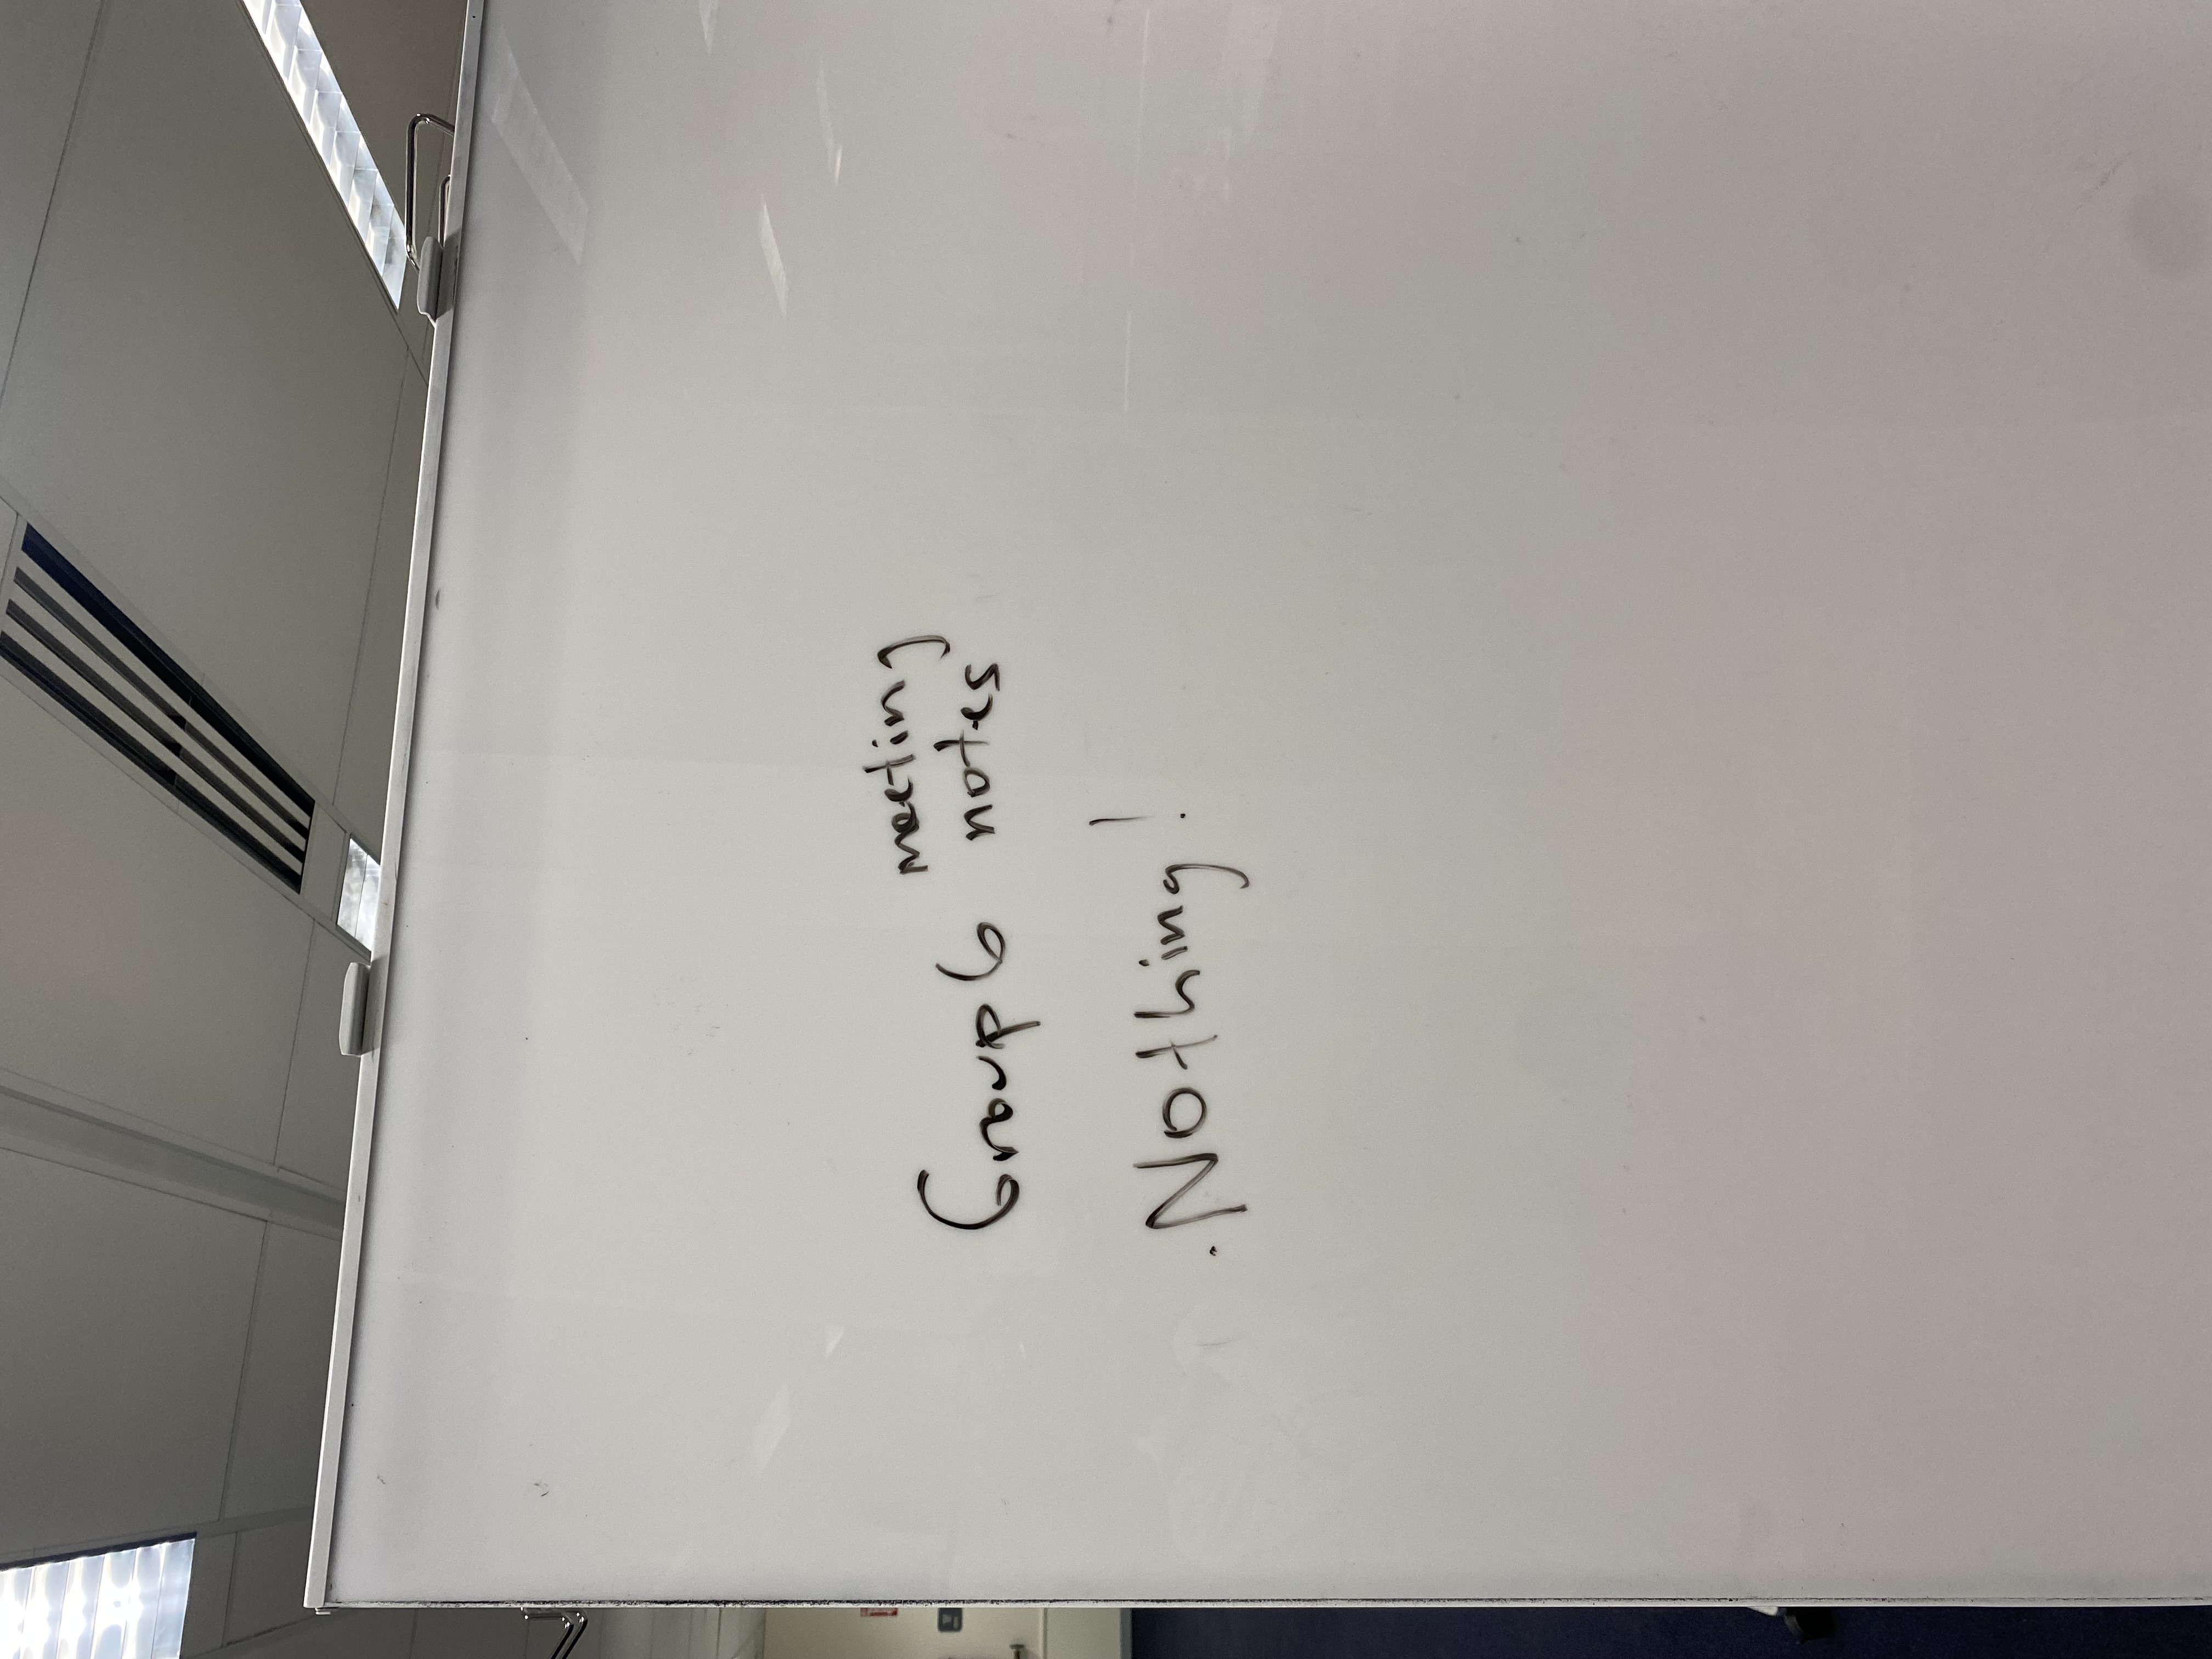 Group 6 meeting notes
. Nothing!